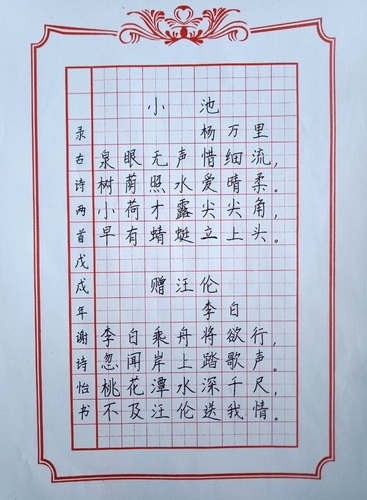 小池
杨万里
泉眼无声惜细流，
树荫照水爱晴柔。
小荷才露尖尖角，
早有蜻蜓立上头。
赠汪伦
李白
李白乘舟将欲行，
忽闻岸上踏歌声。
桃花潭水深千尺，
不及汪伦送我情。
录古诗两首戊戌年谢诗怡书